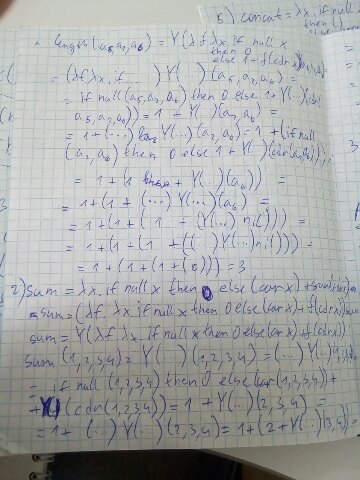 5) concat = λx,
then (
length(a5,a2,a6) = Y(λf.λx.if null x
then 0
else 1+f(cdr x))(a5,a2,a6)
= (λf.λx.if....) Y(...) (a5,a2,a6) =
= if null(a5,a2,a6) then 0 else 1+Y(..)(cdr
a5,a2,a6)) = 1 + Y(..)(a2,a6) =
= 1+(...) Y(..)(a2,a6) = 1+(if null
(a2,a6) then 0 else 1+Y(..)(cdr(a2,a6)))=
= 1+(1+Y(..)(a6)) =
= 1+(1+(...) Y(..)(a6) =
= 1+(1+(1+(Y(..) nil))) =
= 1+(1+(1+((..)Y(..)nil))) =
= 1+(1+(1+(0))) = 3
2) sum = λx if null x then 0 else (car x)+sum(cdr x)
sum = (λf.λx if null x then 0 else (car x)+f(cdr x)) sum
sum = Y(λf.λx.if null x then 0 else (car x)+f(cdr x))
sum (1,2,3,4) = Y(..)(1,2,3,4) = (...) Y(..)(1,2,3,4)
= if null (1,2,3,4) then 0 else (car(1,2,3,4))+
+Y(..)(cdr(1,2,3,4)) = 1 + Y(..)(2,3,4) =
= 1+ (..) Y(..)(2,3,4) = 1+(2+Y(..)(3,4)) =